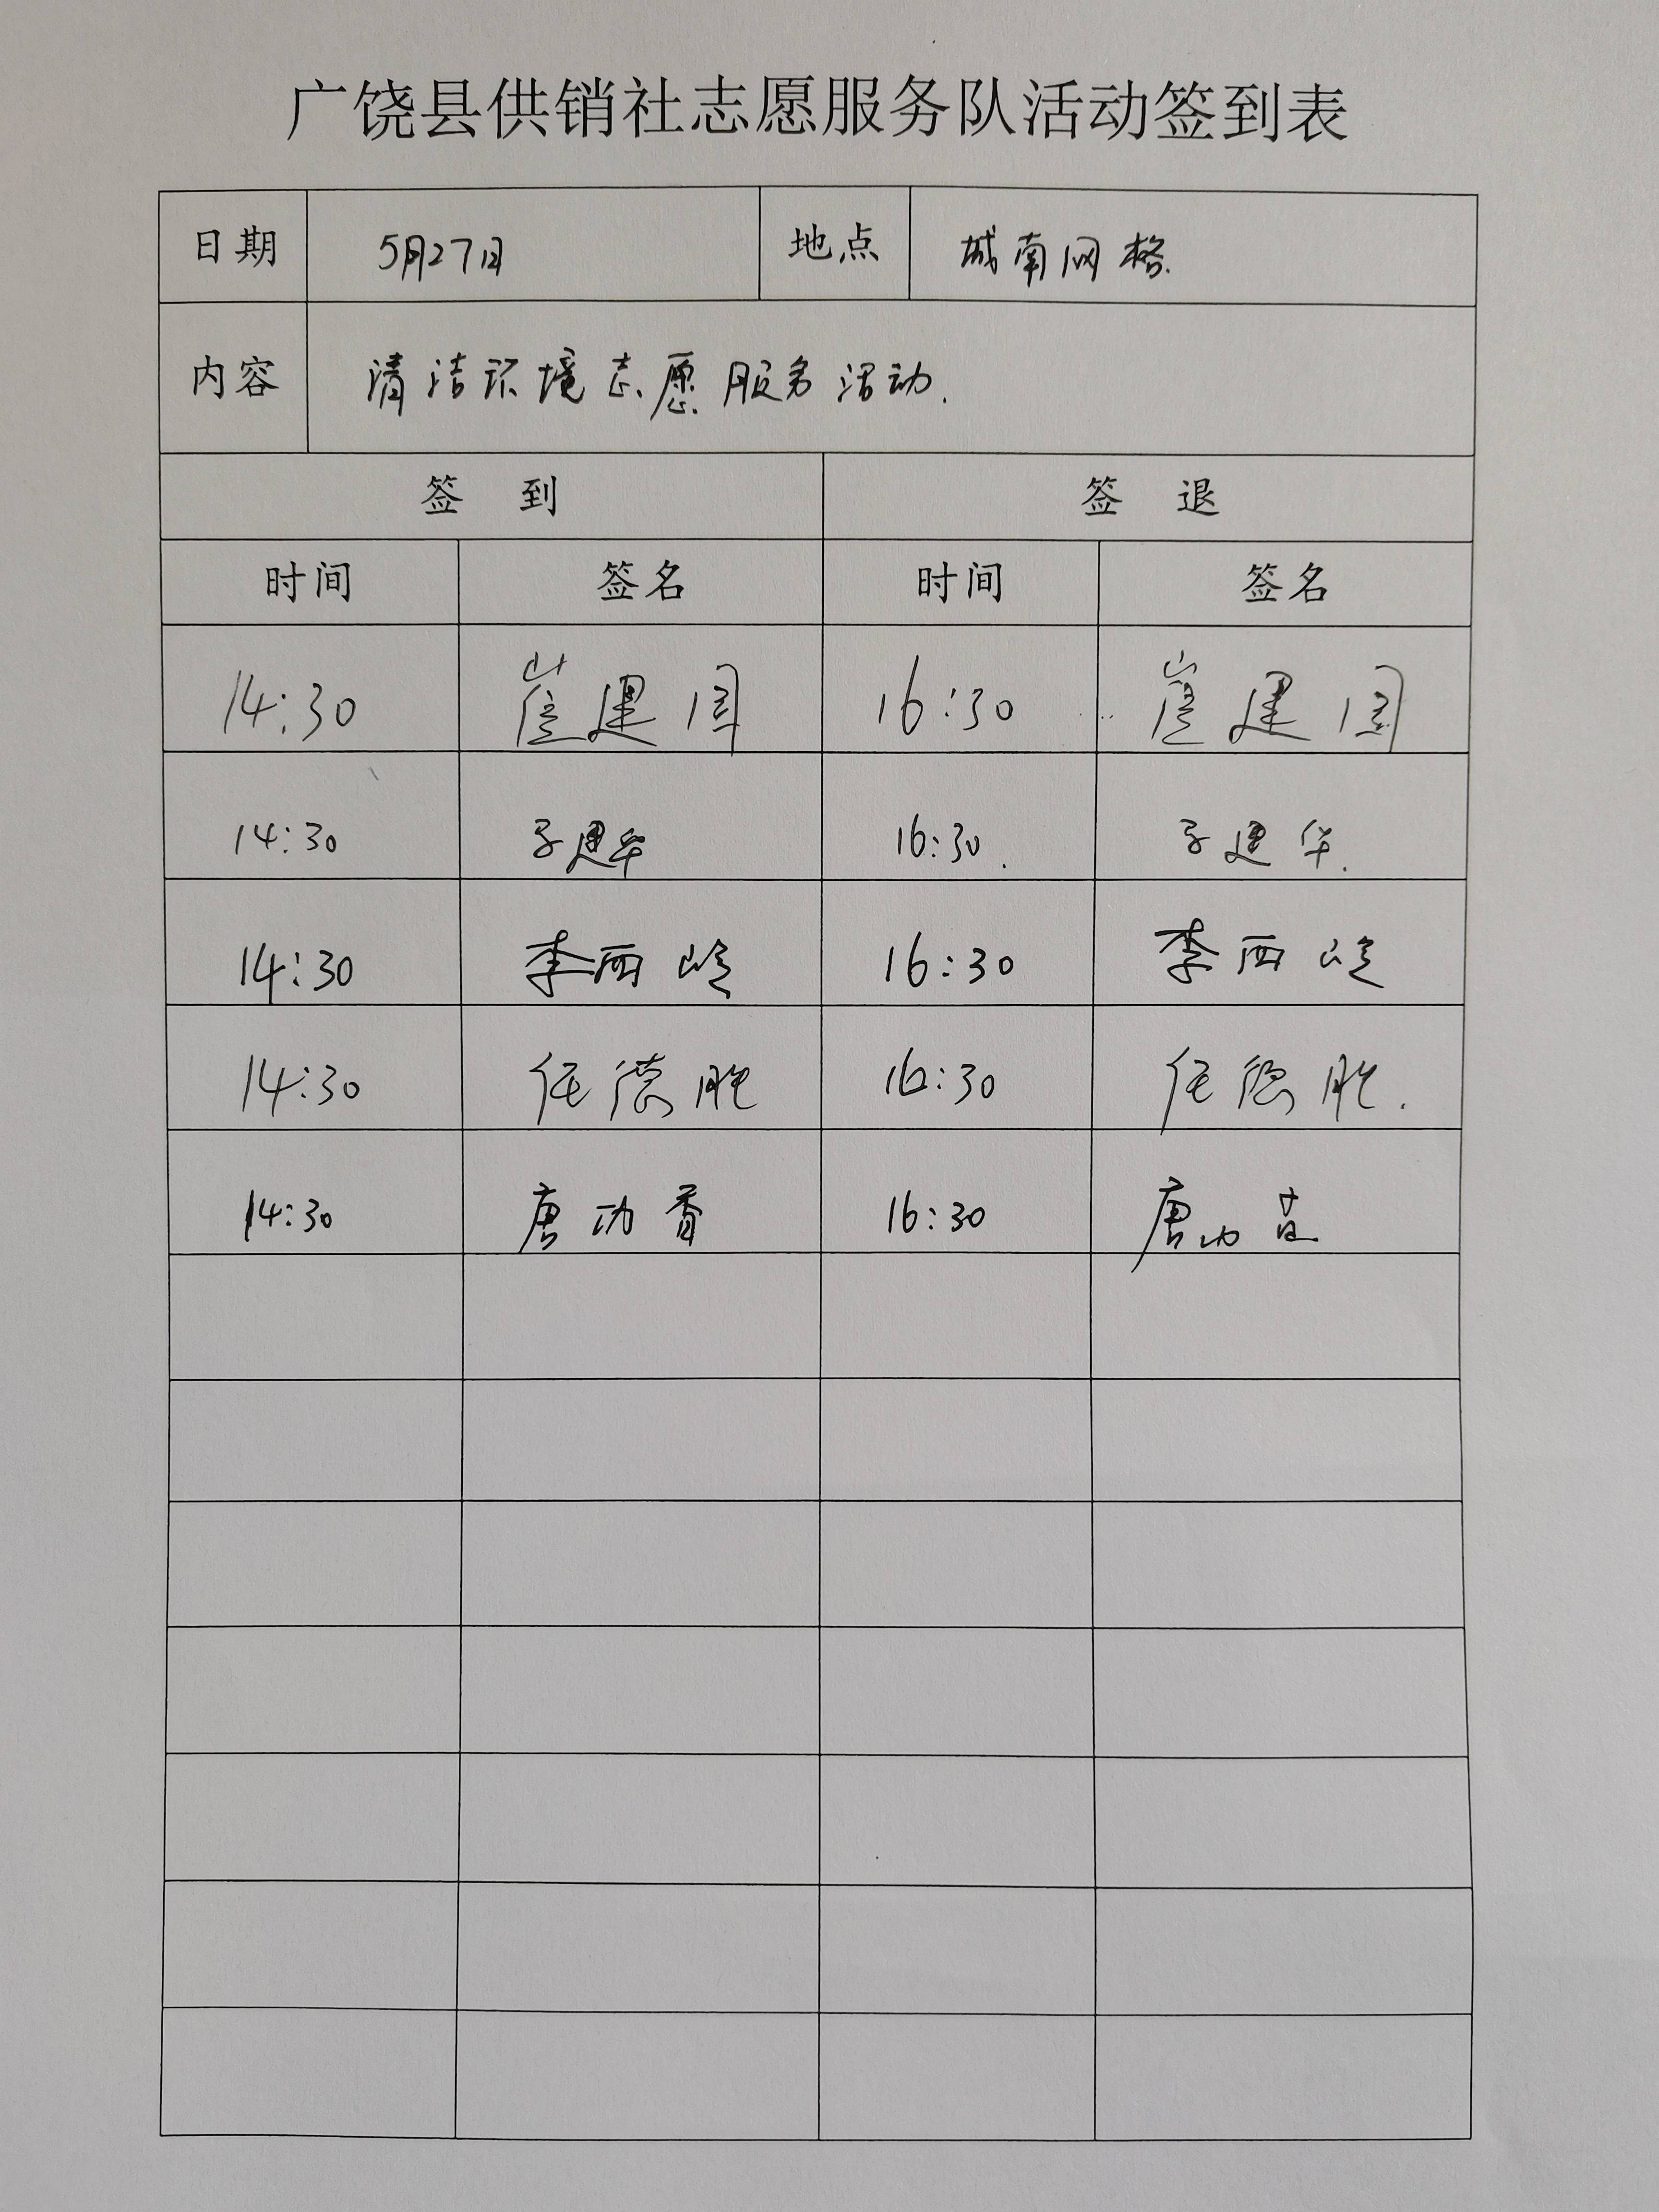 广饶县供销社志愿服务队活动签到表
日期 5月27日 地点 城南网格.
内容 清洁环境志愿服务活动.
签 到 签 退
时间 签名 时间 签名
14:30 崔建国 16:30 崔建国
14:30 建华 16:30. 建华.
14:30 李西岭 16:30 李西岭
14:30 任德胜 16:30 任德胜.
14:30 唐功 16:30 唐功